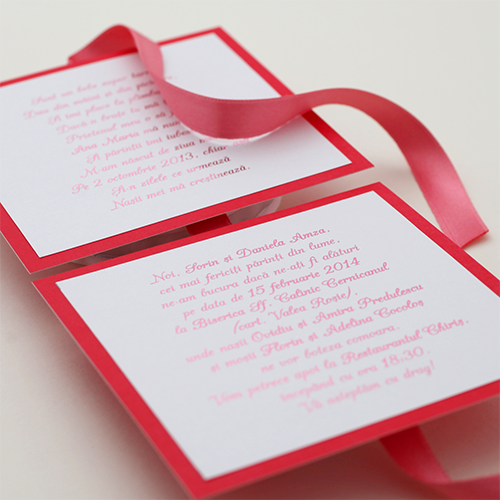 Sunt un bebe super
Dau din mâini și din
A-mi place la plimbare
Dacă-n brațe tu mă
Prietenul meu o să
Ana Maria mă numesc
Și părinții tăi iubesc
M-am născut de ziua
Pe 2 octombrie 2013, chiar
Și-n zilele ce urmează
Nașii mei mă creștinează.
Noi, Sorin și Daniela Amza,
cei mai fericiți părinți din lume,
ne-am bucura dacă ne-ați fi alături
pe data de 15 februarie 2014
la Biserica Sf. Calinic Cernicanul
(cart. Valea Roșie),
unde nașii Ovidiu și Amira Predulescu
și moșii Florin și Adelina Cocoloș
ne vor boteza comoara.
Vom petrece apoi la Restaurantul Chiriș,
începând cu ora 18:30.
Vă așteptăm cu drag!